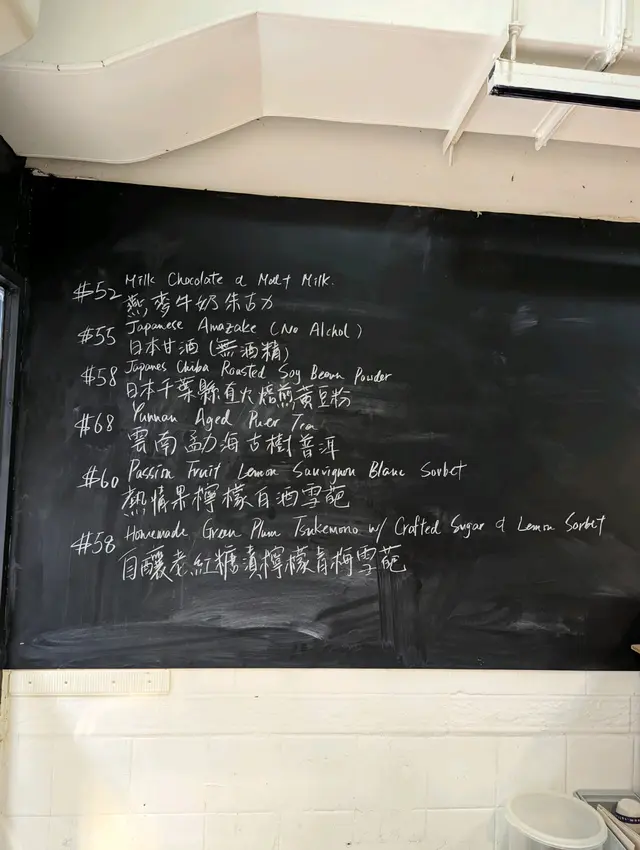 #52 Milk Chocolate & Malt Milk.
燕麥牛奶朱古力
#55 Japanese Amazake (No Alchol)
日本甘酒 (無酒精)
#58 Japanes Chiba Roasted Soy Bean Powder
日本千葉縣直火焙煎黃豆粉
#68 Yunnan Aged Puer Tea
雲南勐海古樹普洱
#60 Passion Fruit Lemon Sauvignon Blanc Sorbet
熱情果檸檬白酒雪葩
#58 Homemade Green Plum Tsukemono w/ Crafted Sugar & Lemon Sorbet
自釀老紅糖漬檸檬青梅雪葩